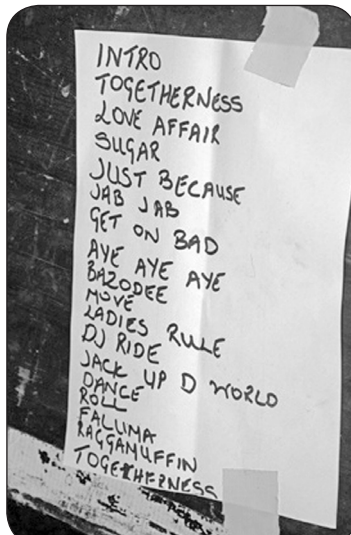 INTRO
TOGETHERNESS
LOVE AFFAIR
SUGAR
JUST BECAUSE
JAB JAB
GET ON BAD
AYE AYE AYE
BAZODEE
MOVE
LADIES RULE
DJ RIDE
JACK UP D WORLD
DANCE
ROLL
FALUMA
RAGGAMUFFIN
TOGETHERNESS